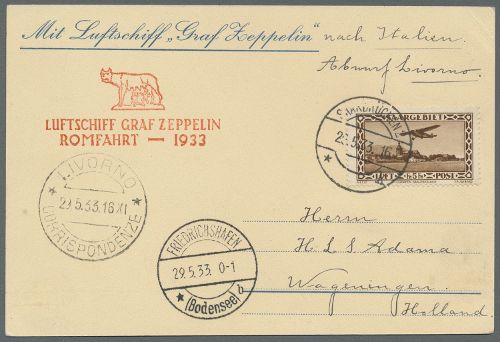 Mit Luftschiff „Graf Zeppelin" nach Italien.
Abwurf Livorno.
LUFTSCHIFF GRAF ZEPPELIN
ROMFAHRT — 1933
SAARBRÜCKEN 2
SAARGEBIET
LUFT 5 POST
LIVORNO
29.5.33.16 XI
CORRISPONDENZE
FRIEDRICHSHAFEN
29.5.33. 0-1
* (Bodensee) b
Herrn
H L S Adama
Wageningen
Holland